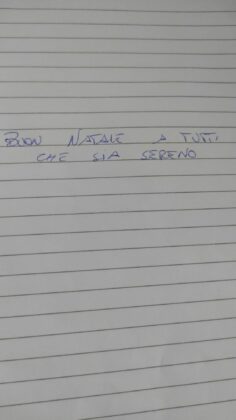 BUON NATALE A TUTTI
CHE SIA SERENO